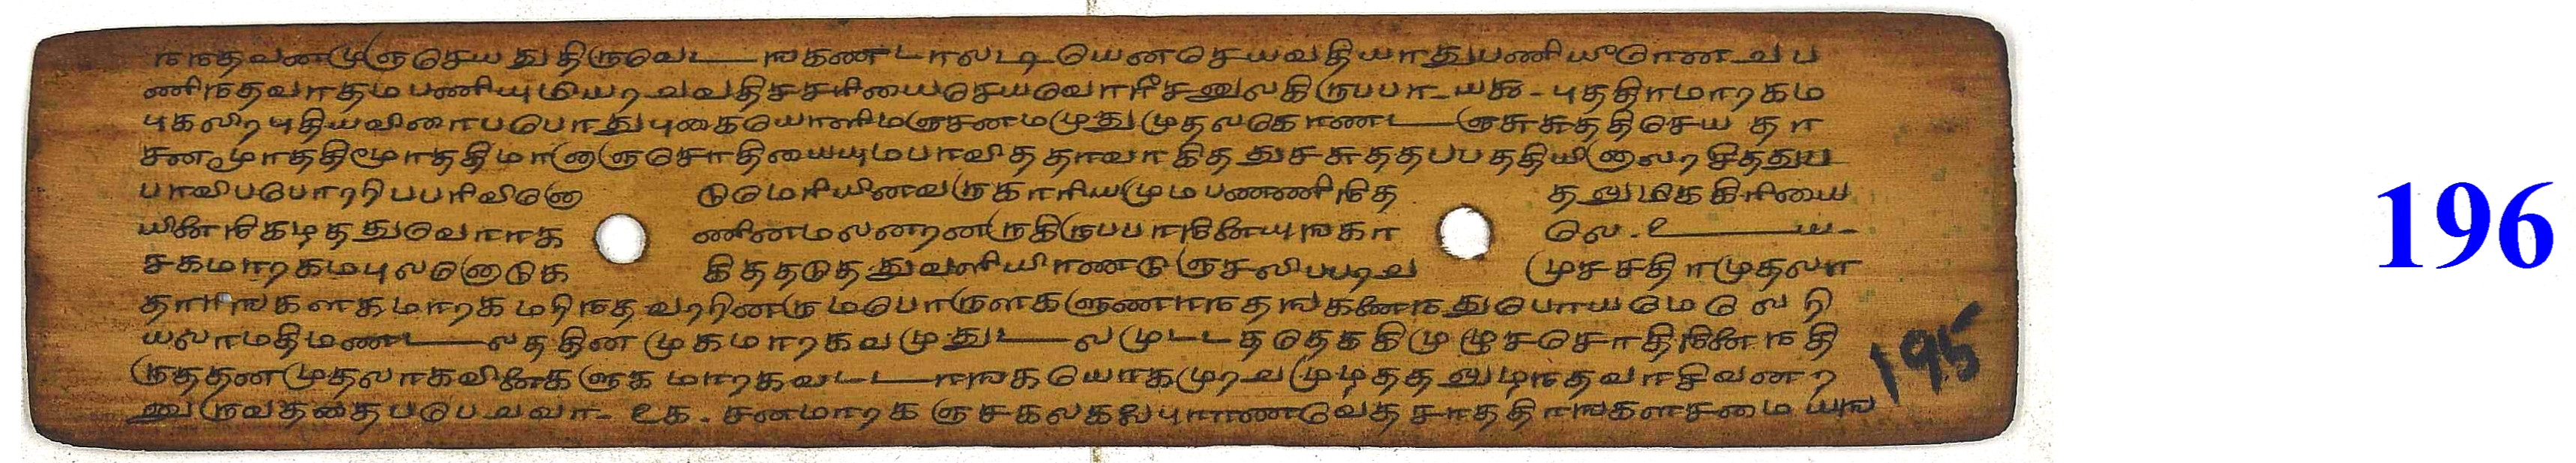 நநதவனமுஞசெயதுதிருவேடஙகணடாலடியேனசெயவதியாதுபணியீரெனவப
ணிநதவரதமபணியுமியறறவதிசசரியைசெயவோரீசனுலகிருபபர-யக-புததிரமாரகம
புகலிறபுதியவிரைபபோதுபுகையொளிமஞசனமமுதுமுதலகொணடஞசுசுததிசெய தா
சனமூரததிமூரததிமானாஞசோதியையுமபாவிததாவாகிததுசசுததபபததியினாலரசசிததுப
பரவிபபோறறிபபரிவினோ டுமெரியினவருகாரியமுமபணணிநித தலுமிககிரியை
யினைநிகழததுவோராக ணினமலனறனருகிருபபரநினையுஙகா லே-உ-ய-
சகமாரகமபுலனொடுக கிததடுததுவளியிரணடுஞசலிபபறறு முசசதிரமுதலா
தாரஙகளகமாரகமறிநதவறறினருமபொருளகளுணரநதஙகணைநதுபோயமேலேறி
யலரமதிமணடலததினமுகமாரகவமுதுடலமுடடததேககிமுழுசசோதிநினைநதி
ருததனமுதலாகவினைகளுகமாரகவடடாஙகயோகமுறறவமுழததலுழநதவரசிவனற
னுருவததைபபெறுபவர-உக-சனமாரகஞசகலகலைபுராணவேதசாததிரஙகளசமையங
195
196